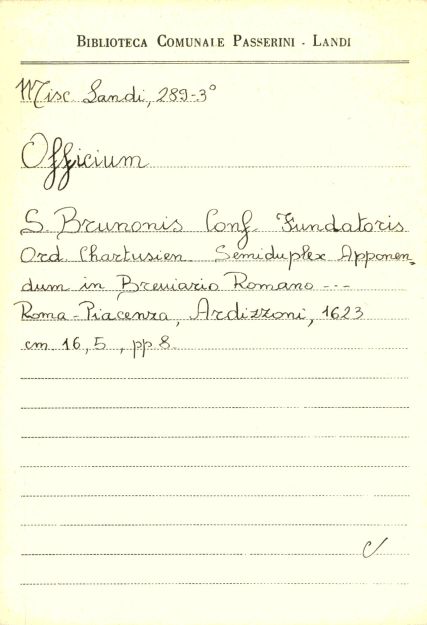 BIBLIOTECA COMUNALE PASSERINI - LANDI
Misc Landi, 289-3°
Officium
S. Brunonis Conf. Fundatoris
Ord. Chartusien. Semiduplex Apponen-
dum in Breviario Romano ---
Roma-Piacenza, Ardizzoni, 1623
cm 16,5, pp 8